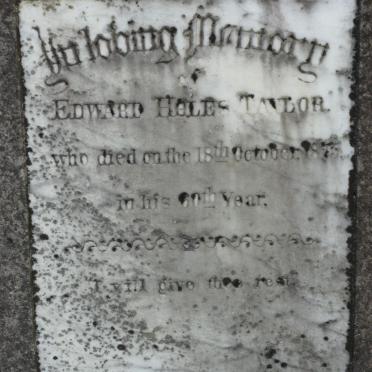 In loving Memory
of
EDWARD HOLES TAYLOR.
who died on the 18th October, 1875,
in his 60th Year.
I will give thee rest.